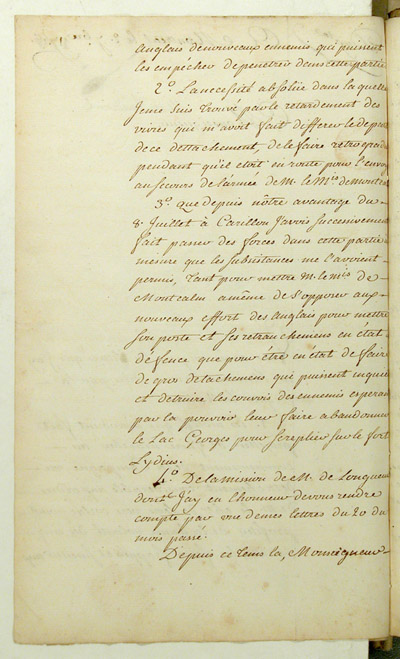 Anglais denouveaux ennemis qui puissent
les empécher de penetrer dans cette partie
2.° La necessité absolüe dans laquelle
Je me suis trouvé par le retardement des
vivres qui m'avoit fait differer le depart
de ce dettachement, de le faire retrograder
pendant qu'il etoit en route pour l'envoyer
au secours de l'armée de M. le M.is de Montcalm
3.° que depuis nôtre avantage du
8. Juillet à Carillon J'avois successivement
fait passer des forces dans cette partie
mesure que les subsistances me l'avoient
permis, tant pour mettre M. le m.is de
Montcalm a même de s'opposer aux
nouveaux effort des Anglais pour mettre
son poste et ses retranchemens en état
défence que pour être en état de faire
de gros detachemens qui puissent inquie
et detruire les convois des ennemis esperant
par la pouvoir leur faire abandonner
le Lac Georges pour se replier sur le fort
Lydius.
4.° De la mission de M. de Longueuil
dont J'ay eu l'honneur de vous rendre
compte par une de mes lettres du 20 du
mois passé.
Depuis ce tems la, Monseigneur